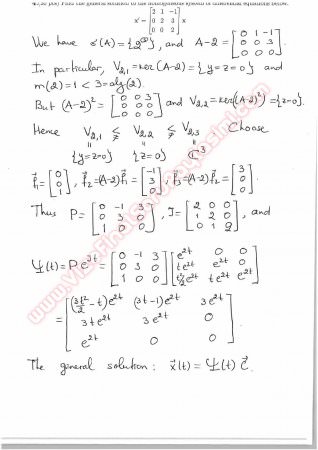 4.(20 pts) Find the general solution to the homogeneous system of differential equations below.
x' = [2 1 -1; 0 2 3; 0 0 2] x
We have σ(A) = {2⁽³⁾}, and A-2 = [0 1 -1; 0 0 3; 0 0 0].
In particular, V₂,₁ = ker(A-2) = {y=z=0} and
m(2)=1 < 3 = alg(2)
But (A-2)² = [0 0 3; 0 0 0; 0 0 0] and V₂,₂ = ker((A-2)²) = {z=0}.
Hence V₂,₁ ⊊ V₂,₂ ⊊ V₂,₃ Choose
{y=z=0} {z=0} ℂ³
f⃗₁ = [0; 0; 1], f⃗₂ = (A-2)f⃗₁ = [-1; 3; 0], f⃗₃ = (A-2)f⃗₂ = [3; 0; 0].
Thus P = [0 -1 3; 0 3 0; 1 0 0], J = [2 0 0; 1 2 0; 0 1 2], and
Ψ(t) = P e^{Jt} = [0 -1 3; 0 3 0; 1 0 0] [e^{2t} 0 0; te^{2t} e^{2t} 0; t²/2 e^{2t} te^{2t} e^{2t}]
= [(3t²/2 - t)e^{2t} (3t-1)e^{2t} 3e^{2t}; 3te^{2t} 3e^{2t} 0; e^{2t} 0 0]
The general solution: x⃗(t) = Ψ(t) C⃗.